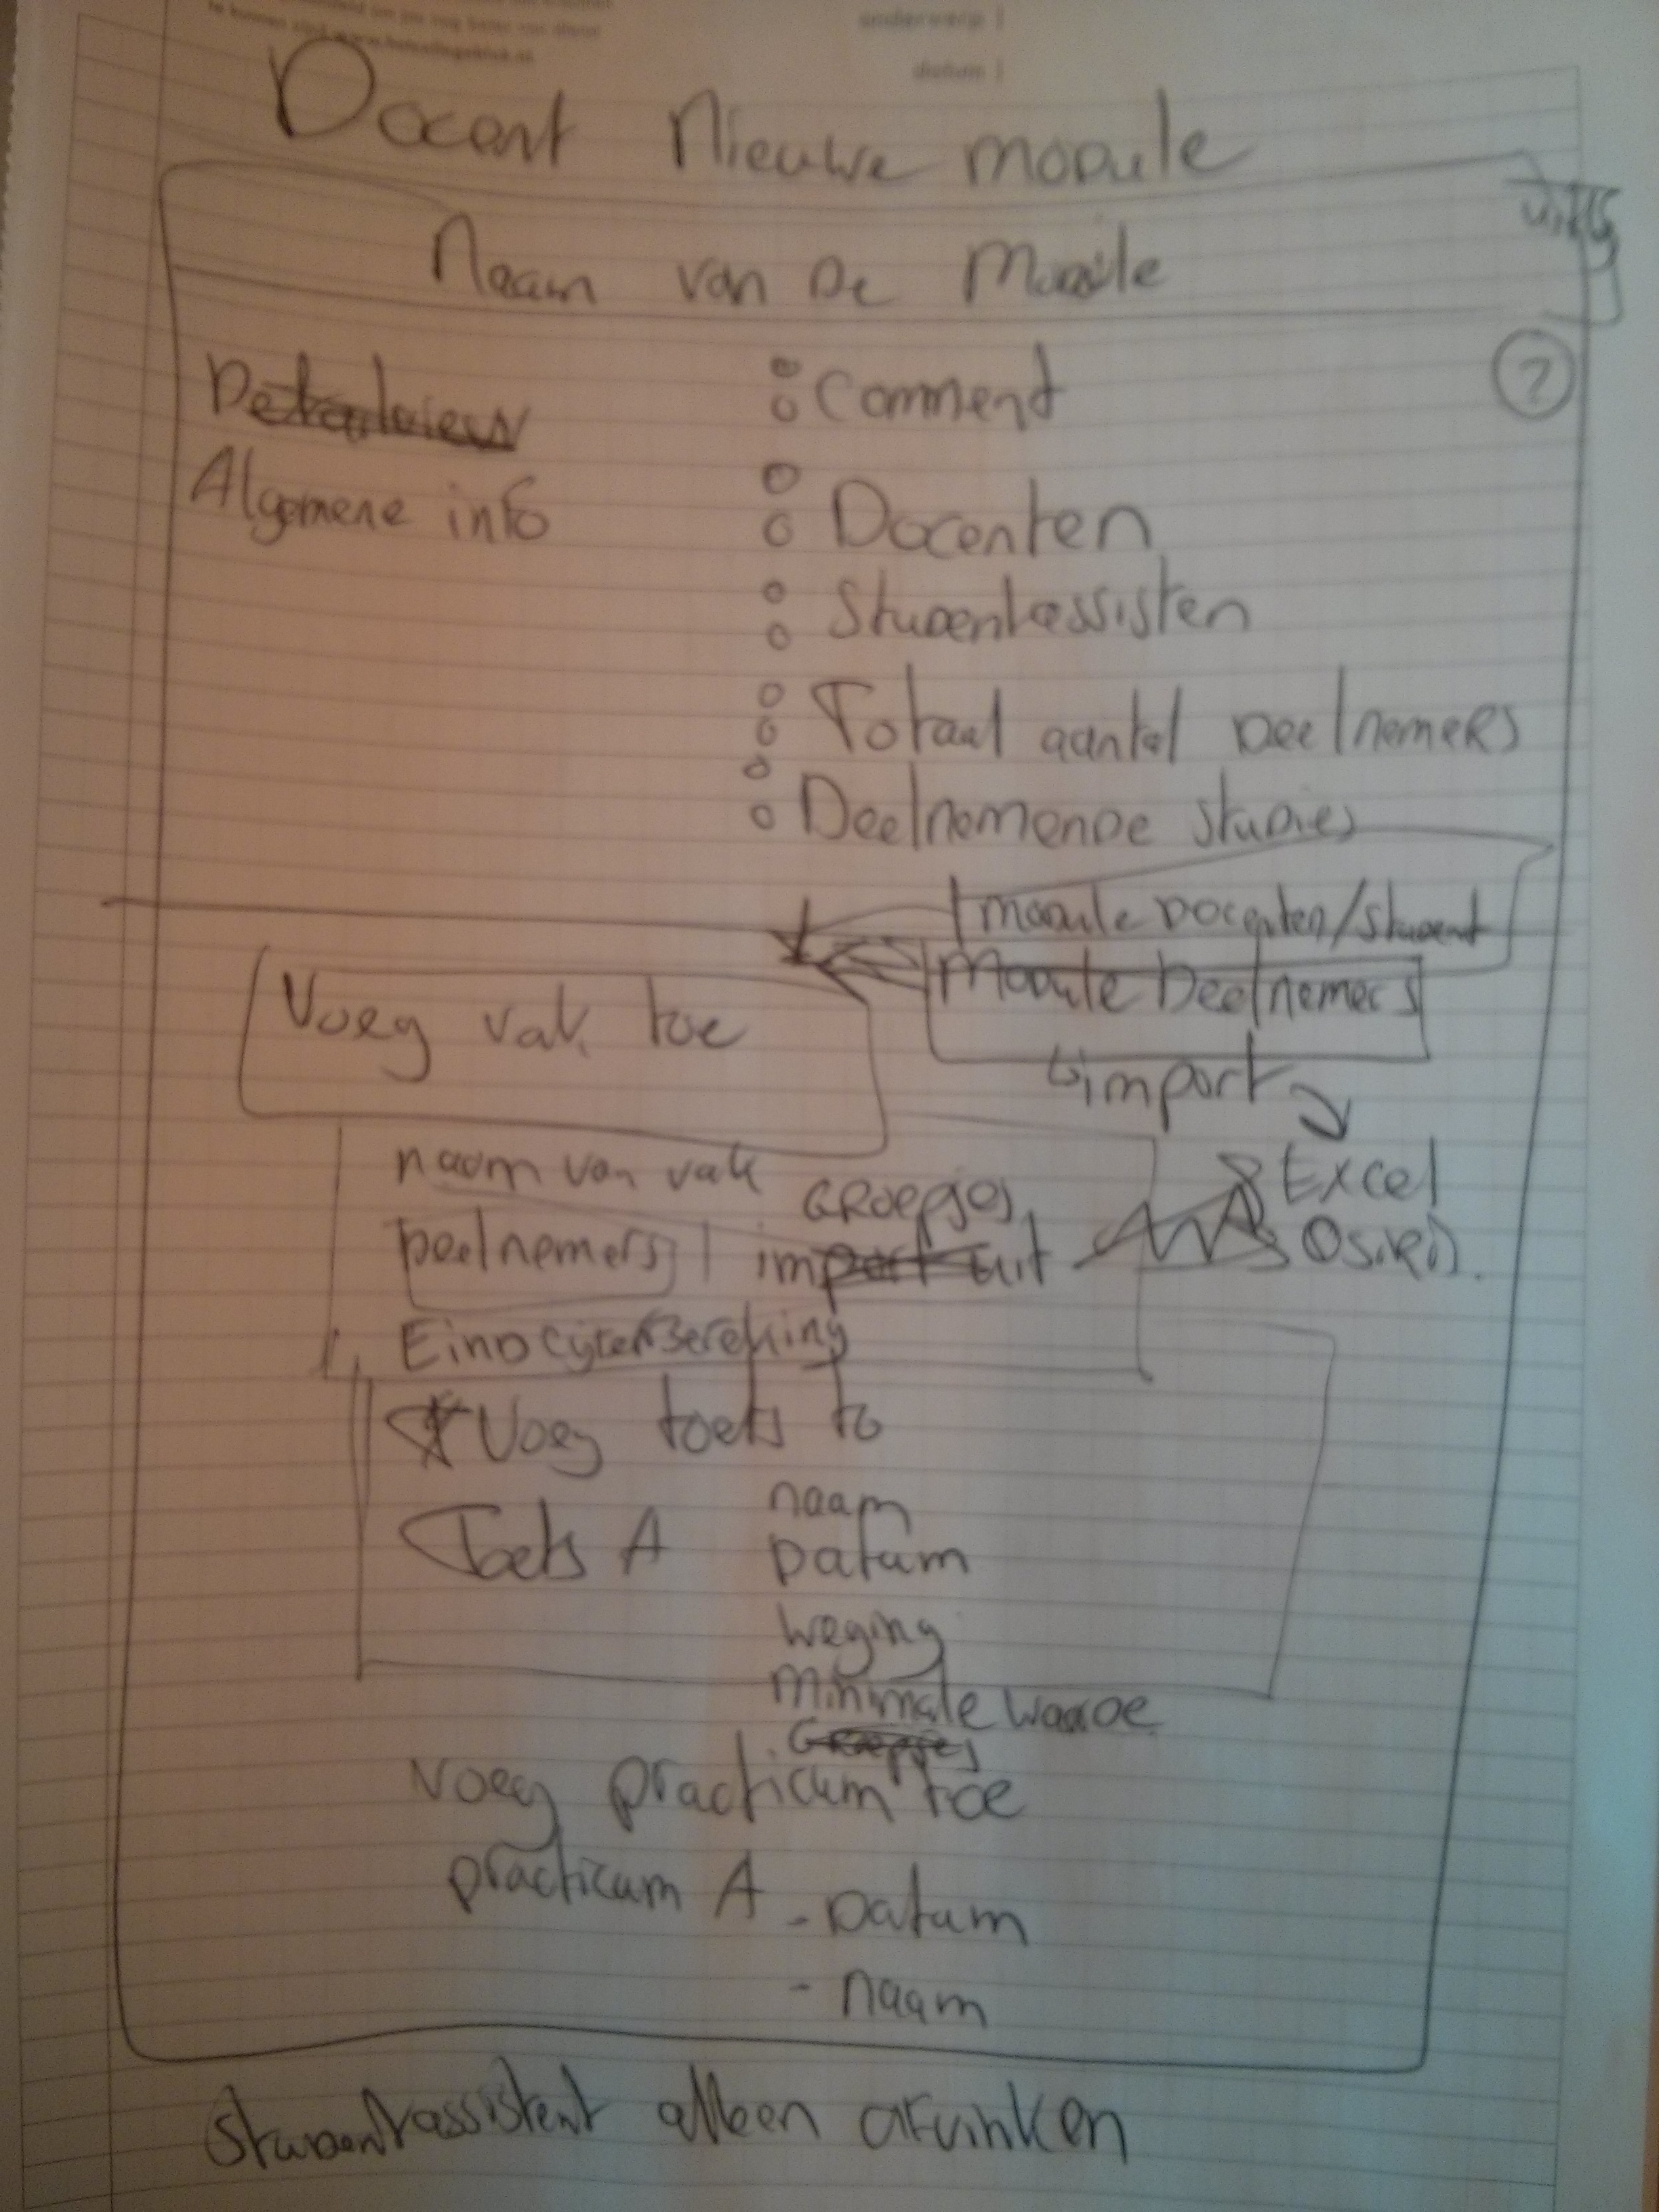 onderwerp |
datum |
Docent Nieuwe module
Naam van De Module
?
Comment
Algemene info
Docenten
Studentassisten
Totaal aantal Deelnemers
Deelnemende studies
module Docenten/student
Module Deelnemers
Voeg vak toe
import
naam van vak
Excel
GRoepjes
Deelnemers | import uit
OsiRis
EindcijferBereking
Voeg toets to
naam
Toets A
Datum
weging
Minimale waarde
Groepjes
Voeg practicum toe
practicum A - Datum
- naam
Studentassistent alleen afvinken